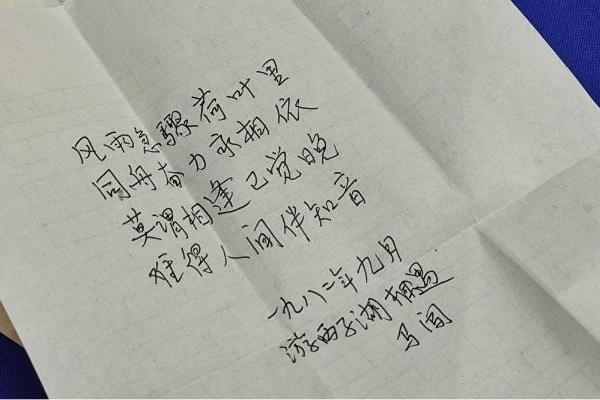 风雨急骤荷叶里
同舟奋力永相依
莫谓相逢已觉晚
难得人间伴知音
一九八二年九月
游西子湖相遇
马闯